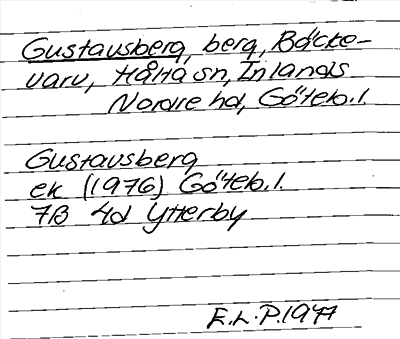 Gustavsberg, berg, Bäcke-
varv, Hålta sn, Inlands
Nordre hd, Göteb.l.
Gustavsberg
ek (1976) Göteb.l.
7B 4d Ytterby
E.L.P. 1977